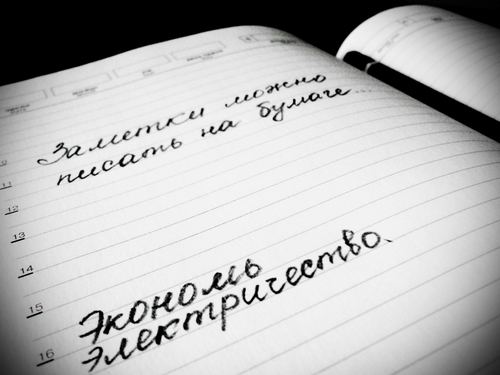 Заметки можно
писать на бумаге...
11
12
13
14
15
16
Экономь
электричество.